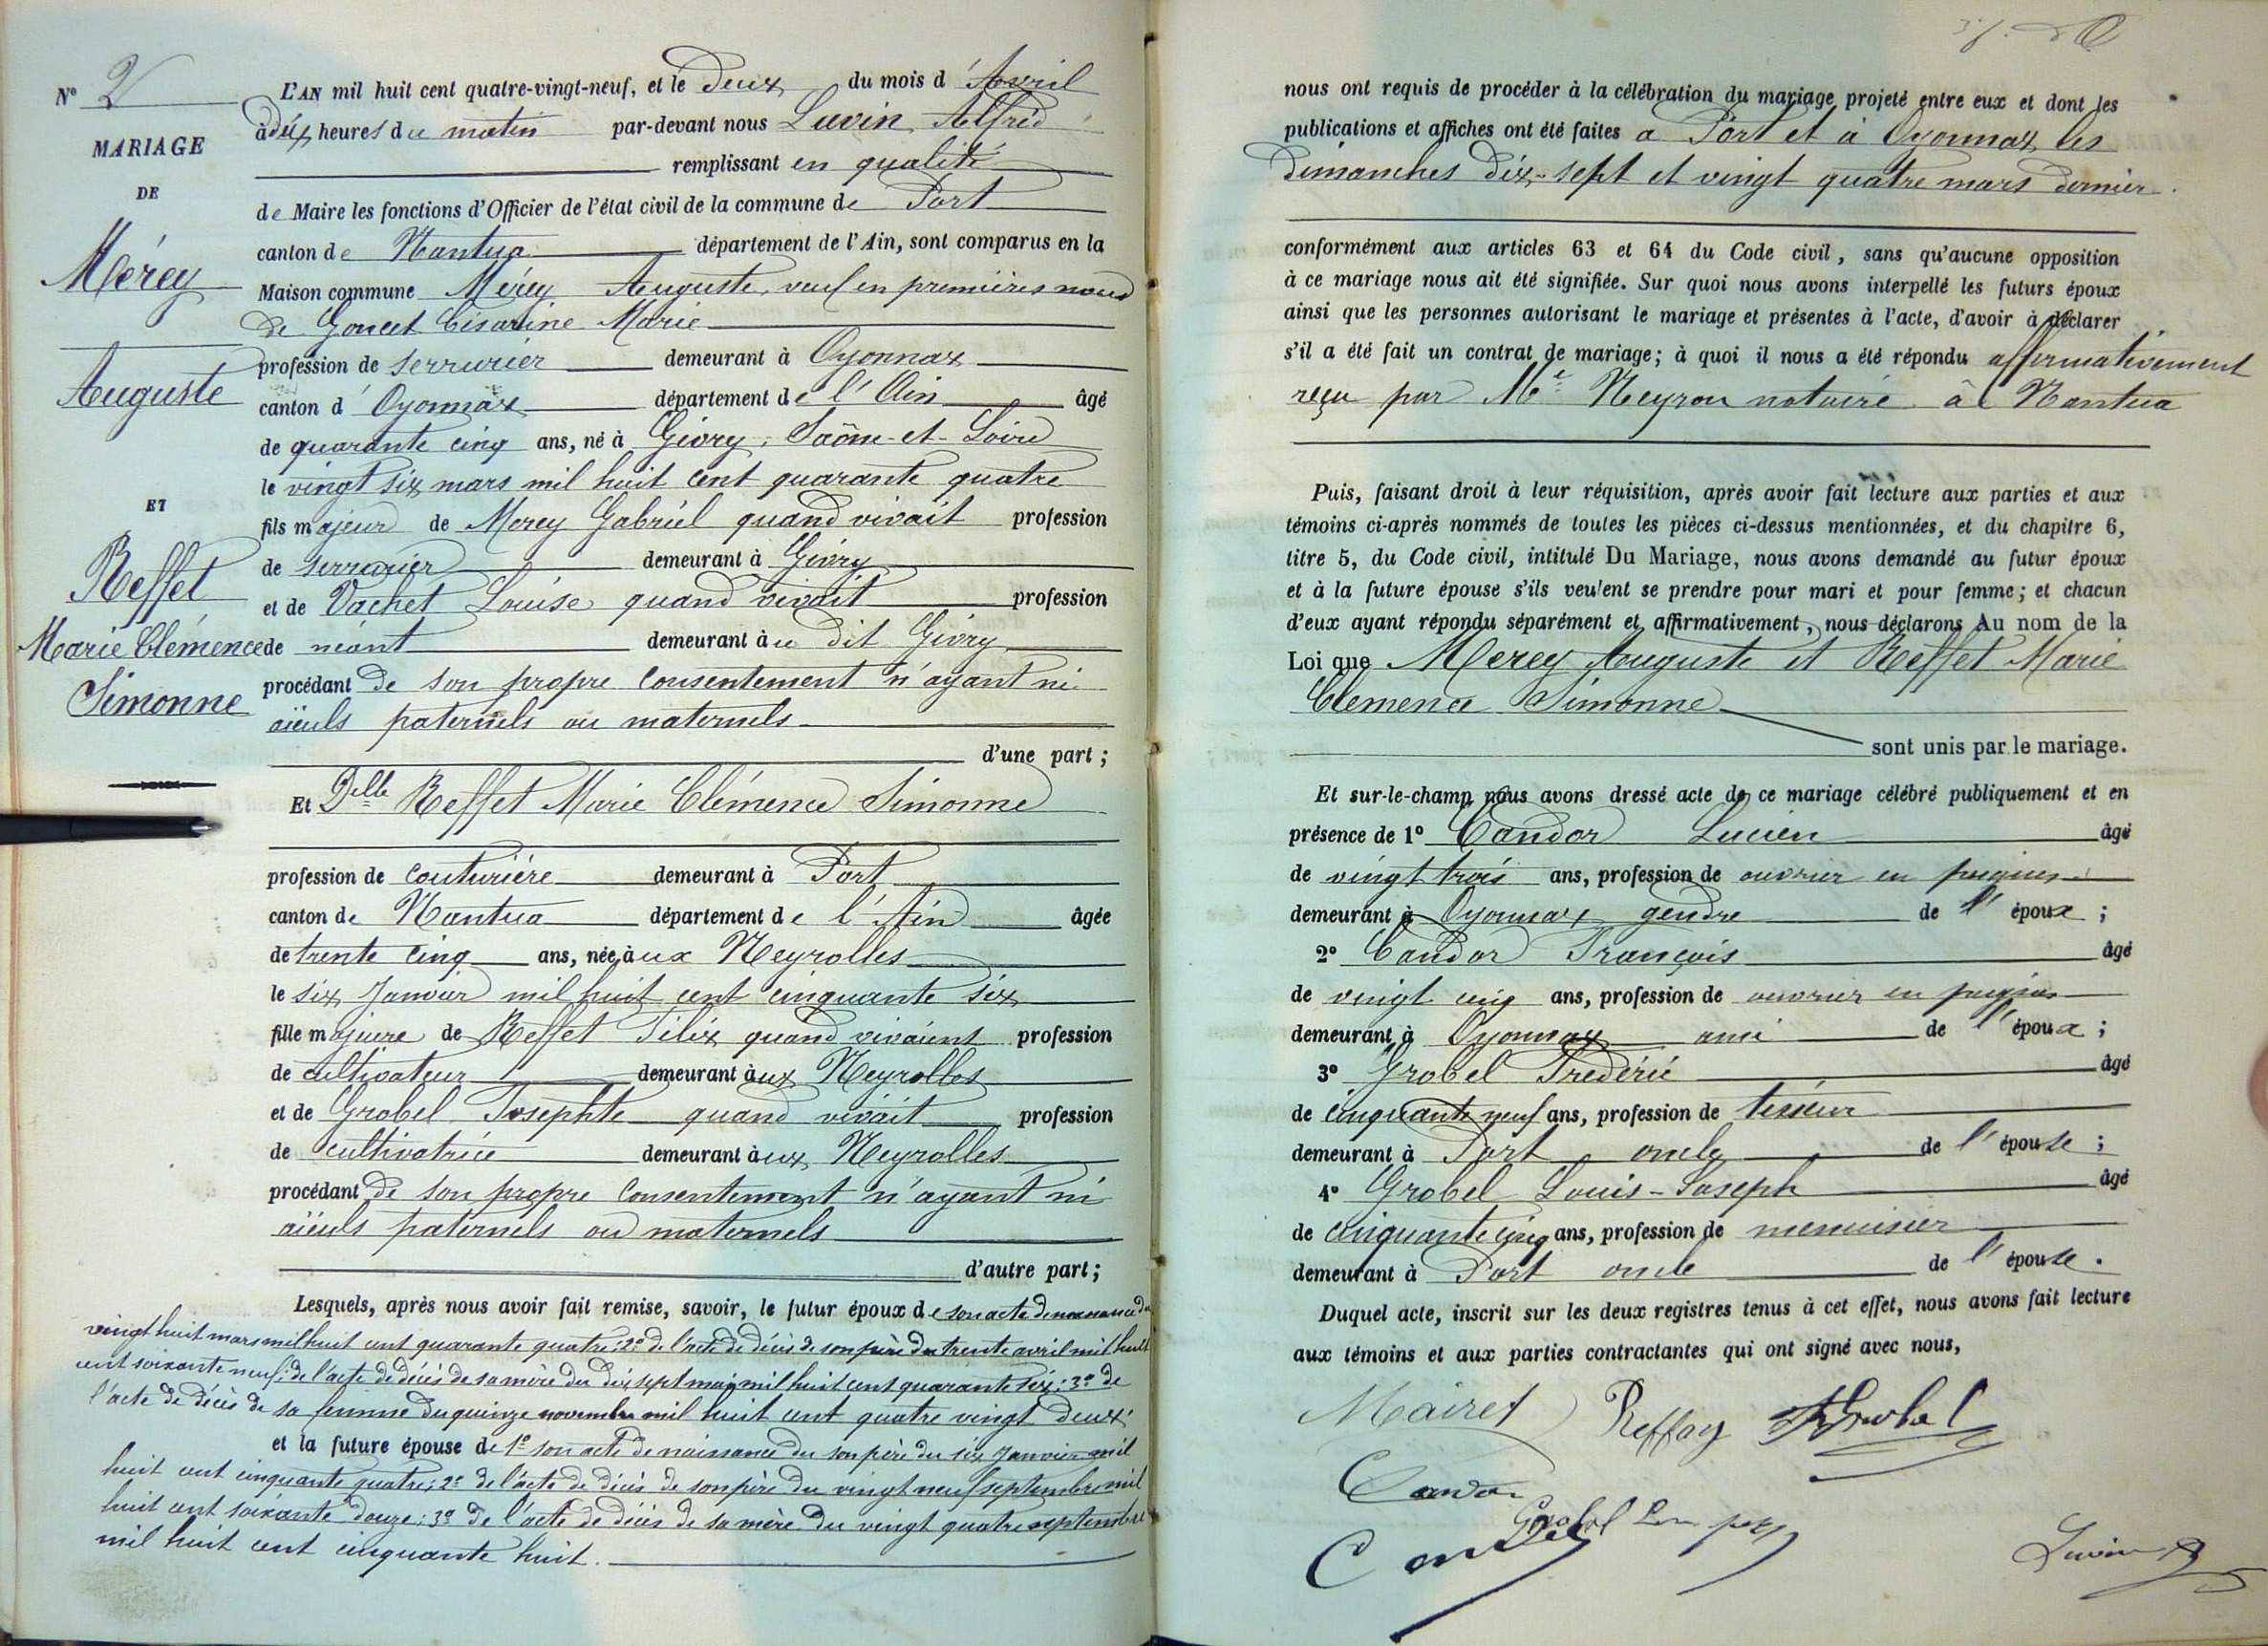 N° 2
MARIAGE
DE
Mérey
Auguste
ET
Reffet
Marie Clémence
Simonne
L'AN mil huit cent quatre-vingt-neuf, et le Deux du mois d'Avril
à dix heures du matin par-devant nous Luvin Alfred
remplissant en qualité
de Maire les fonctions d'Officier de l'état civil de la commune de Port
canton de Nantua département de l'Ain, sont comparus en la
Maison commune Mérey Auguste, veuf en premières noces
de Goncet Césarine Marie
profession de serrurier demeurant à Oyonnax
canton d'Oyonnax département de l'Ain âgé
de quarante cinq ans, né à Givry, Saône-et-Loire
le vingt six mars mil huit cent quarante quatre
fils majeur de Merey Gabriel quand vivait profession
de serrurier demeurant à Givry
et de Vachet Louise quand vivait profession
de néant demeurant au dit Givry
procédant de son propre consentement n'ayant ni
aïeuls paternels ou maternels
d'une part ;
Et Delle Reffet Marie Clémence Simonne
profession de couturière demeurant à Port
canton de Nantua département de l'Ain âgée
de trente cinq ans, née aux Neyrolles
le six Janvier mil huit cent cinquante six
fille majeure de Reffet Félix quand vivaient profession
de cultivateur demeurant aux Neyrolles
et de Grobel Josephte quand vivait profession
de cultivatrice demeurant aux Neyrolles
procédant de son propre consentement n'ayant ni
aïeuls paternels ou maternels
d'autre part ;
Lesquels, après nous avoir fait remise, savoir, le futur époux de son acte de naissance du
vingt huit mars mil huit cent quarante quatre ; 2° de l'acte de décès de son père du trente avril mil huit
cent soixante neuf ; de l'acte de décès de sa mère du dix sept mai mil huit cent quarante six ; 3° de
l'acte de décès de sa femme du quinze novembre mil huit cent quatre vingt deux
et la future épouse de 1° son acte de naissance du son père du six Janvier mil
huit cent cinquante quatre ; 2° de l'acte de décès de son père du vingt neuf septembre mil
huit cent soixante douze ; 3° de l'acte de décès de sa mère du vingt quatre septembre
mil huit cent cinquante huit.
nous ont requis de procéder à la célébration du mariage projeté entre eux et dont les
publications et affiches ont été faites a Port et à Oyonnax les
dimanches dix-sept et vingt quatre mars dernier.
conformément aux articles 63 et 64 du Code civil, sans qu'aucune opposition
à ce mariage nous ait été signifiée. Sur quoi nous avons interpellé les futurs époux
ainsi que les personnes autorisant le mariage et présentes à l'acte, d'avoir à déclarer
s'il a été fait un contrat de mariage ; à quoi il nous a été répondu affirmativement
reçu par Me Neyron notaire à Nantua
Puis, faisant droit à leur réquisition, après avoir fait lecture aux parties et aux
témoins ci-après nommés de toutes les pièces ci-dessus mentionnées, et du chapitre 6,
titre 5, du Code civil, intitulé Du Mariage, nous avons demandé au futur époux
et à la future épouse s'ils veulent se prendre pour mari et pour femme ; et chacun
d'eux ayant répondu séparément et affirmativement, nous déclarons Au nom de la
Loi que Merey Auguste et Reffet Marie
Clemence Simonne
sont unis par le mariage.
Et sur-le-champ nous avons dressé acte de ce mariage célébré publiquement et en
présence de 1° Candor Lucien âgé
de vingt trois ans, profession de ouvrier en peignes
demeurant à Oyonnax gendre de l'époux ;
2° Candor François âgé
de vingt cinq ans, profession de ouvrier en peignes
demeurant à Oyonnax ami de l'époux ;
3° Grobel Frédéric âgé
de cinquante neuf ans, profession de tisseur
demeurant à Port oncle de l'épouse ;
4° Grobel Louis-Joseph âgé
de cinquante cinq ans, profession de menuisier
demeurant à Port oncle de l'épouse.
Duquel acte, inscrit sur les deux registres tenus à cet effet, nous avons fait lecture
aux témoins et aux parties contractantes qui ont signé avec nous,
Mairet Reffay Grobel
Candor
Grobel
Candor
Luvin